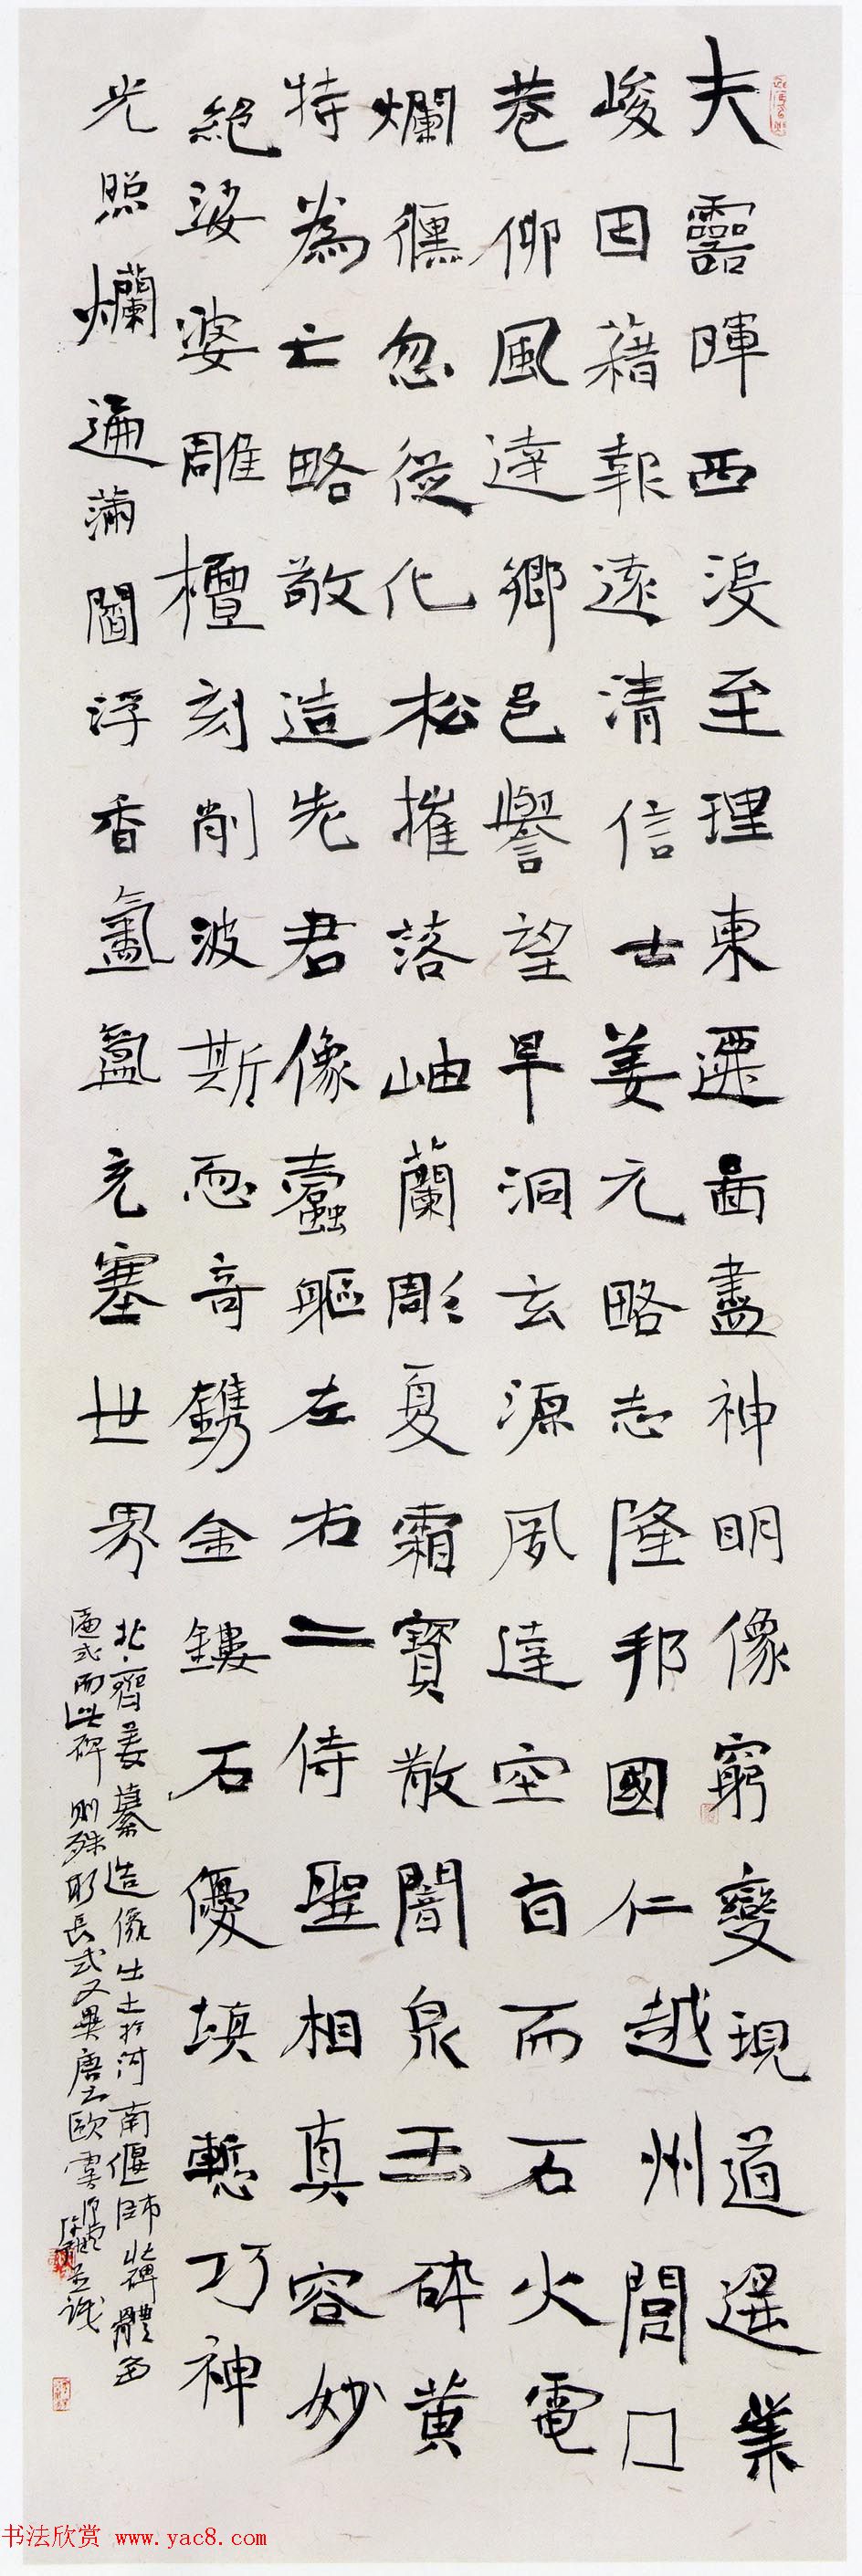 夫靈暉西沒至理東遷啚盡神明像窮變現道遥業
峻因藉報遠清信士姜元略志隆邦國仁越州閭□
巷仰風達鄉邑譽望早洞玄源夙達空旨而石火電
爛儵忽從化松摧落岫蘭彫夏霜寶散闇泉玉碎黃
特為亡略敬造先君像蠹軀左右二侍聖相真容妙
絕娑婆雕檀刻削波斯恧奇鐫金鏤石優填慙巧神
光照爛遍滿閻浮香氳氳充塞世界
北齊姜纂造像出土於河南偃師北碑體多
廉式而此碑則殊形長式又異唐之歐虞
書法欣賞 www.yac8.com